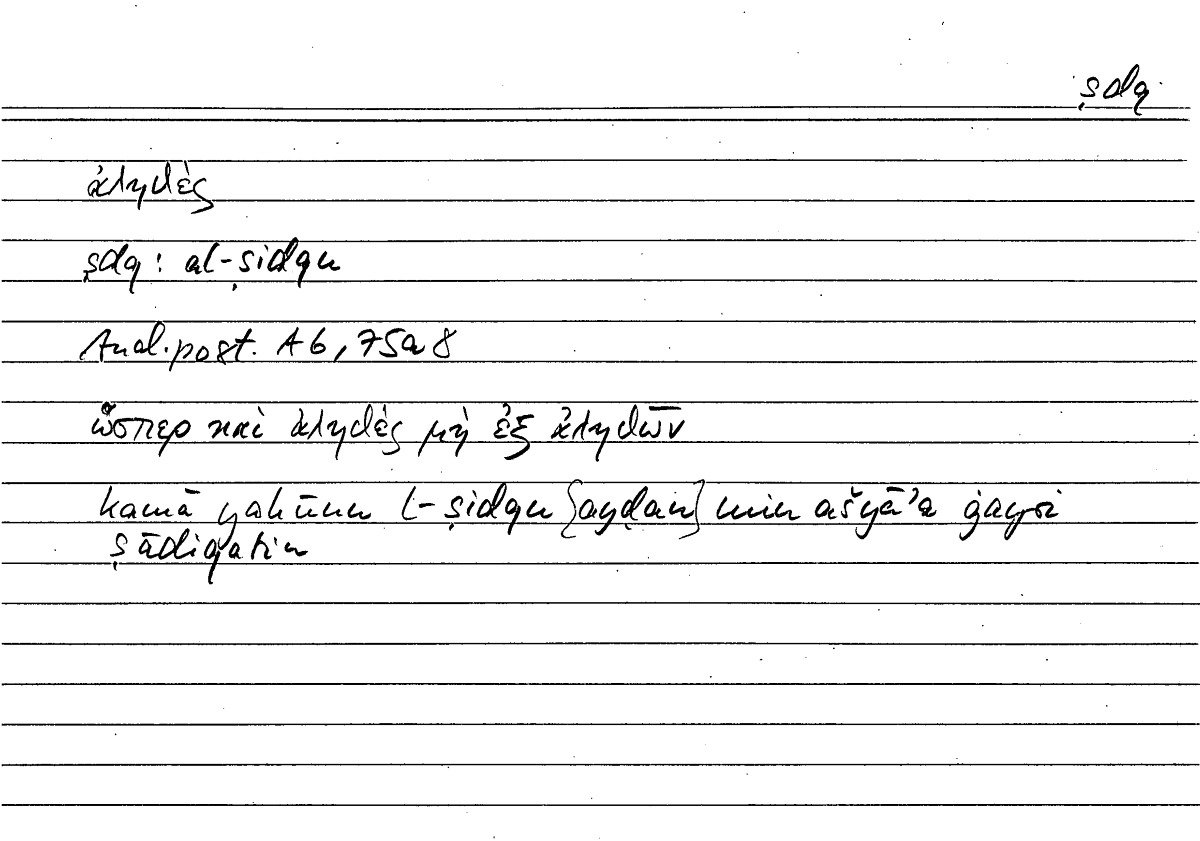 ṣdq
ἀληθὲς
ṣdq: al-ṣidqu
Anal.post. A6, 75a8
ὥσπερ καὶ ἀληθὲς μὴ ἐξ ἀληθῶν
kamā yakūnu l-ṣidqu {ayḍan} min ašyāʾa ġayri
ṣādiqatin